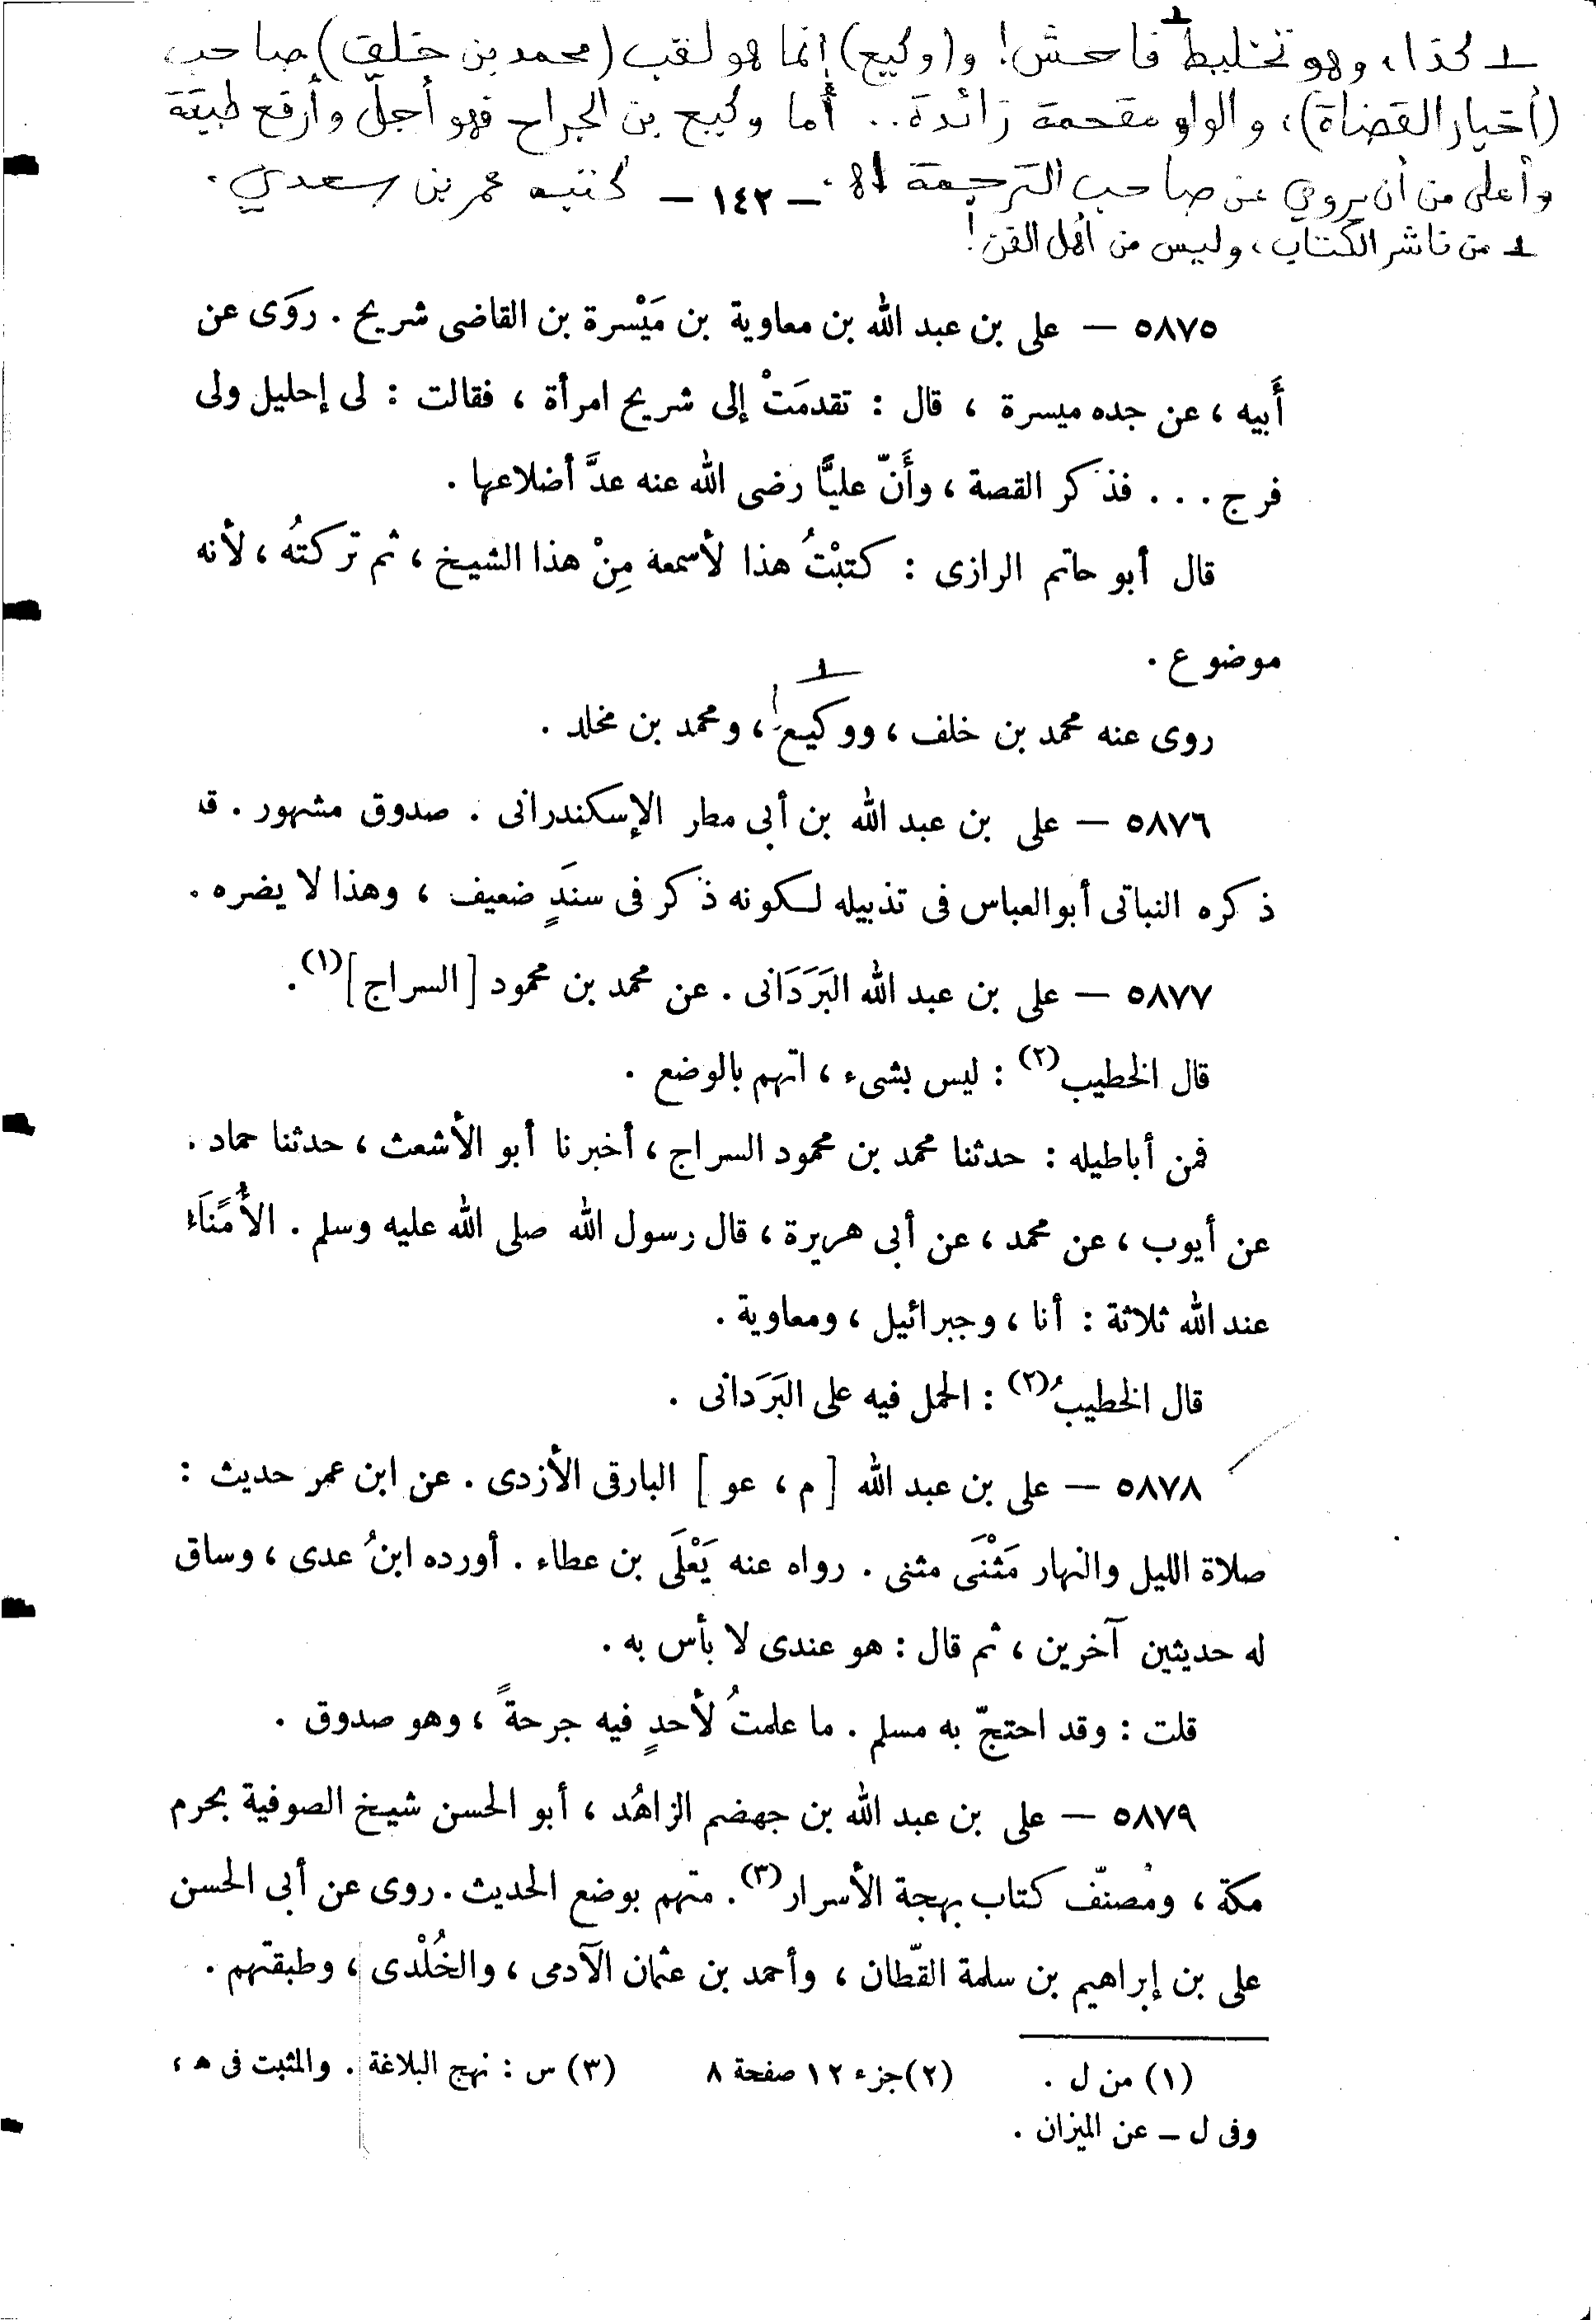 ـ١ كذا، وهو تخليط فاحش! و(وكيع) إنما هو لقب (محمد بن خلف) صاحب
(أخبار القضاة)، والواو مقحمة زائدة.. أما وكيع بن الجراح فهو أجلّ وأرفع طبقة
وأعلى من أن يروي عن صاحب الترجمة اهـ. كتبه عمر بن سعدي.
— ١٤٢ —
ـ١ من ناشر الكتاب، وليس من أهل الفن!
٥٨٧٥ — على بن عبد الله بن معاوية بن مَيْسرة بن القاضى شريح . روَى عن
أَبيه ، عن جده ميسرة ، قال : تقدمَتْ إلى شريح امرأة ، فقالت : لى إحليل ولى
فرج . . . فذكر القصة ، وأَنّ عليًّا رضى الله عنه عدَّ أضلاعها .
قال أبو حاتم الرازى : كتبْتُ هذا لأسمعه مِنْ هذا الشيخ ، ثم تركتُه ، لأنه
موضوع .
ـ١
روى عنه محمد بن خلف ، ووكيع ! ، ومحمد بن مخلد .
٥٨٧٦ — على بن عبد الله بن أبى مطر الإسكندرانى . صدوق مشهور . قد
ذكره النباتى أبو العباس فى تذييله لكونه ذكر فى سندٍ ضعيف ، وهذا لا يضره .
٥٨٧٧ — على بن عبد الله البَرَدَانى . عن محمد بن محمود [ السراج ](١) .
قال الخطيب(٢) : ليس بشىء ، اتهم بالوضع .
فمن أباطيله : حدثنا محمد بن محمود السراج ، أخبرنا أبو الأشعث ، حدثنا حماد .
عن أيوب ، عن محمد ، عن أبى هريرة ، قال رسول الله صلى الله عليه وسلم . الأُمَناَء
عند الله ثلاثة : أنا ، وجبرائيل ، ومعاوية .
قال الخطيبُ(٢) : الحمل فيه على البَرَدانى .
٥٨٧٨ — على بن عبد الله [ م ، عو ] البارقى الأزدى . عن ابن عمر حديث :
صلاة الليل والنهار مَثْنَى مثنى . رواه عنه يَعْلَى بن عطاء . أورده ابنُ عدى ، وساق
له حديثين آخرين ، ثم قال : هو عندى لا بأس به .
قلت : وقد احتجّ به مسلم . ما علمتُ لأحدٍ فيه جرحةً ، وهو صدوق .
٥٨٧٩ — على بن عبد الله بن جهضم الزاهُد ، أبو الحسن شيخ الصوفية بحرم
مكة ، ومُصنّف كتاب بهجة الأسرار(٣) . متهم بوضع الحديث . روى عن أبى الحسن
على بن إبراهيم بن سلمة القّطان ، وأحمد بن عثمان الآدمى ، والخُلْدى ، وطبقتهم .
(١) من ل . (٢) جزء ١٢ صفحة ٨ (٣) س : نهج البلاغة . والمثبت فى ه ،
وفى ل – عن الميزان .